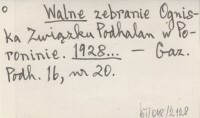 Walne zebranie Ognis-
ka Związku Podhalan w Po-
roninie. 1928... — Gaz.
Podh. 16, nr 20.